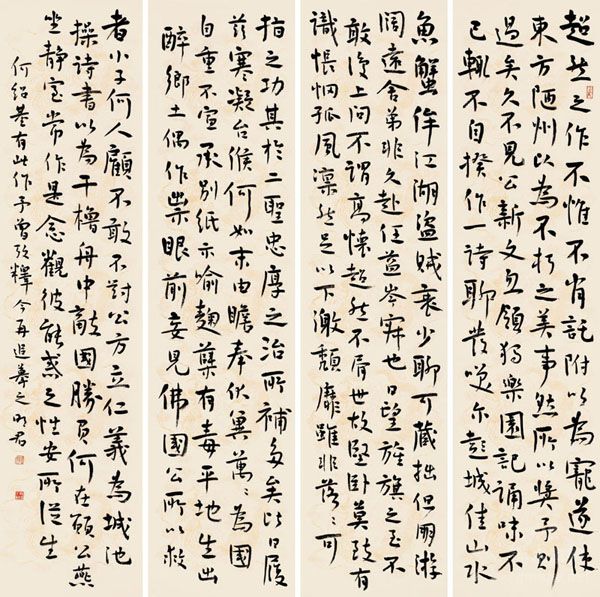 超然之作不惟不肖託附以為寵遂使
東方陋州以為不朽之美事然所以獎予則
過矣久不見公新文忽領獨樂園記誦味不
已輒不自揆作一詩聊發笑尔彭城佳山水
魚蟹侔江湖盜賊衰少聊可藏拙但朋游
闊遠舍弟非久赴任益岑寂也日望旌旗之至不
敢復上問不謂高懷超然不屑世故堅卧莫致有
識悵惘孤風凛然足以下激頹靡雖非落〻可
指之功其於二聖忠厚之治所補多矣比日履
茲寒凝台候何如末由瞻奉伏冀萬〻為國
自重不宣承別紙示喻麴糵有毒平地生出
醉鄉土偶作祟眼前妄見佛國公所以救
者小子何人顧不敢不對公方立仁義為城池
操詩書以為干櫓舟中敵國勝負何在願公燕
坐靜室常作是念觀彼能惑之性安所從生
何紹基有此作予曾釋今再追摹之